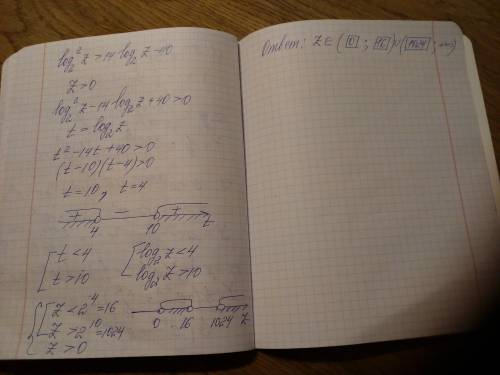 log₂²z>14log₂z-40
z>0
log₂²z-14log₂z+40>0
t=log₂z
t²-14t+40>0
(t-10)(t-4)>0
t=10, t=4
+ - +
4 10 t
[t<4 [log₂z<4
[t>10 [log₂z>10
{[z<2⁴=16
{[z>2¹⁰=1024
{z>0
0 16 1024 z
Ответ: z∈(0; 16)∪(1024; +∞)